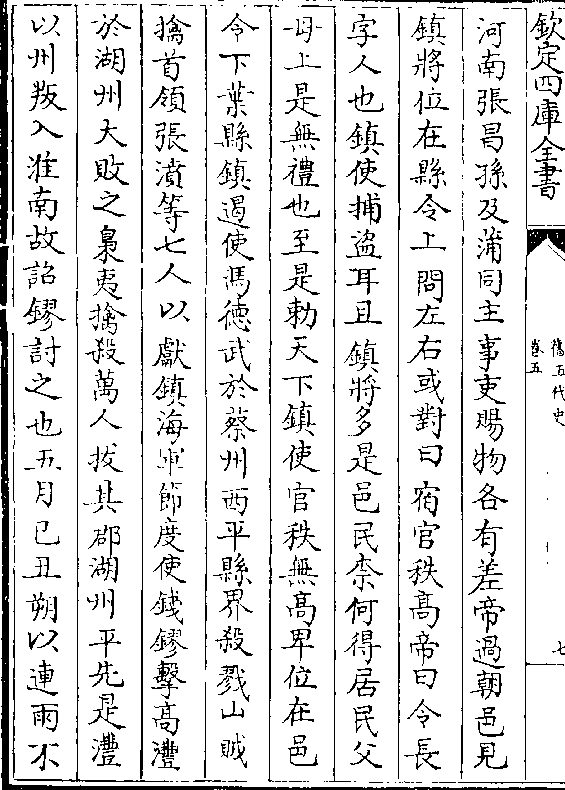 欽定四庫全書
舊五代史
卷五
七
河南張昌孫及蒲同主事吏賜物各有差帝過朝邑見
鎮將位在縣令上問左右或對曰宿官秩高帝曰令長
字人也鎮使捕盗耳且鎮將多是邑民柰何得居民父
母上是無禮也至是勅天下鎮使官秩無高卑位在邑
令下葉縣鎮遏使馮德武於蔡州西平縣界殺戮山賊
擒首領張濆等七人以獻鎮海軍節度使錢鏐擊高灃
於湖州大敗之梟夷擒殺萬人拔其郡湖州平先是灃
以州叛入淮南故詔鏐討之也五月己丑朔以連雨不